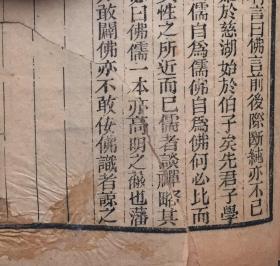 言曰佛豈前後際斷純亦不已
始於慈湖始於伯子矣先君子學
儒自爲儒佛自爲佛何必比而
性之所近而已儒者談禪略其
必曰佛儒一本亦高明之蔽也藩
敢闢佛亦不敢佞佛識者諒之